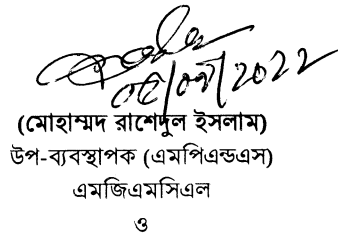 (মোহাম্মদ রাশেদুল ইসলাম)
উপ-ব্যবস্থাপক (এমপিএন্ডএস)
এমজিএমসিএল
ও